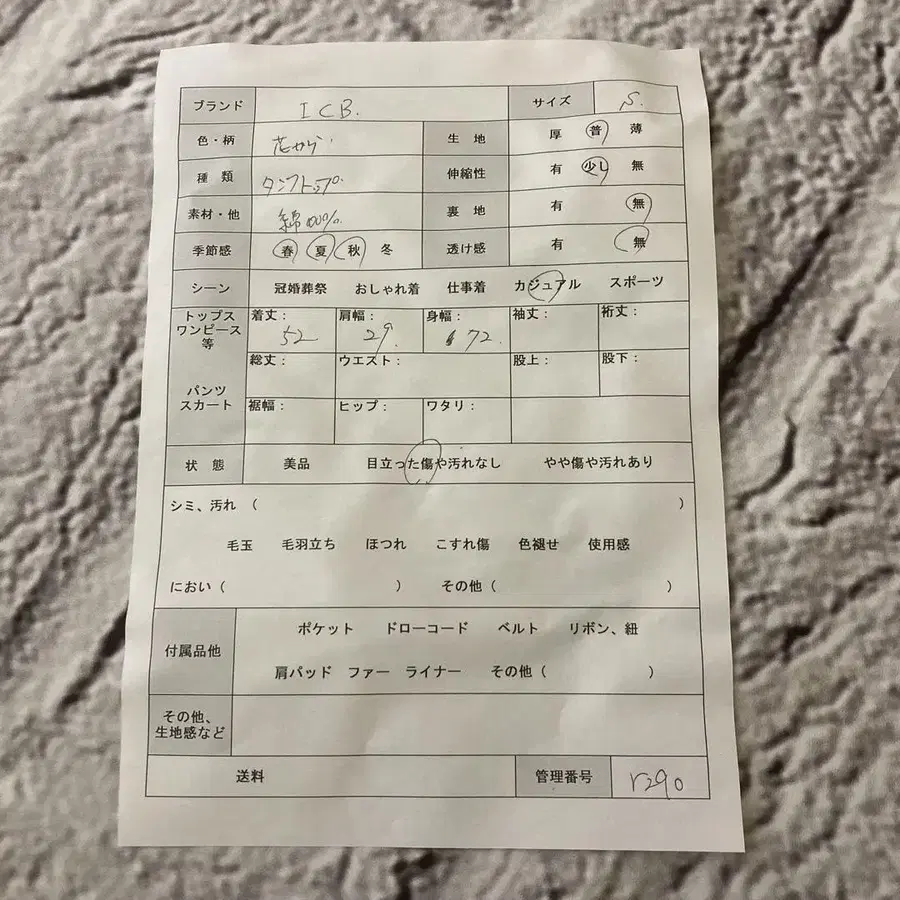 ブランド ICB. サイズ S.
色・柄 花がら 生地 厚 普 薄
種類 タンクトップ 伸縮性 有 少し 無
素材・他 綿100% 裏地 有 無
季節感 春 夏 秋 冬 透け感 有 無
シーン 冠婚葬祭 おしゃれ着 仕事着 カジュアル スポーツ
トップス
ワンピース
等
着丈: 52 肩幅: 29. 身幅: 72. 袖丈: 裄丈:
パンツ
スカート
総丈: ウエスト: 股上: 股下:
裾幅: ヒップ: ワタリ:
状態 美品 目立った傷や汚れなし やや傷や汚れあり
シミ、汚れ ( )
毛玉 毛羽立ち ほつれ こすれ傷 色褪せ 使用感
におい ( ) その他 ( )
付属品他 ポケット ドローコード ベルト リボン、紐
肩パッド ファー ライナー その他 ( )
その他、
生地感など
送料 管理番号 r290